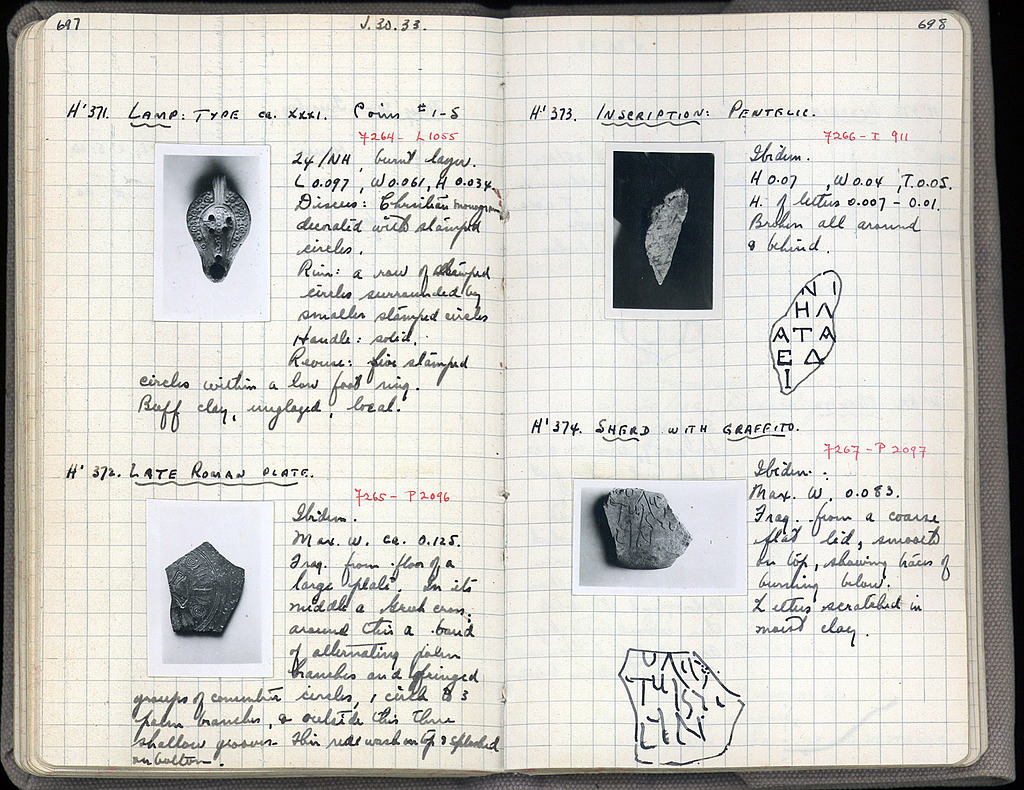 697
J. 30. 33.
H' 371. LAMP: TYPE ca. XXXI. Coins #1-5
7264 - L 1055
24/NH, burnt layer.
L 0.097, W 0.061, H 0.034.
Discus: Christian monogram
decorated with stamped
circles.
Rim: a row of stamped
circles surrounded by
smaller stamped circles
Handle: solid.
Reverse: five stamped
circles within a low foot ring.
Buff clay, unglazed, local.
H' 372. LATE ROMAN PLATE.
7265 - P 2096
Ibidem.
Max. W. ca. 0.125.
Frag. from floor of a
large plate. In its
middle a Greek cross;
around this a band
of alternating palm
branches and fringed
groups of concentric circles, 1 circle to 3
palm branches, & outside this three
shallow grooves. Thin red wash on top & splashed
on bottom.
698
H' 373. INSCRIPTION: PENTELIC.
7266 - I 911
Ibidem.
H 0.07, W 0.04, T. 0.05.
H. of letters 0.007 - 0.01.
Broken all around
& behind.
Ν Ι
Η Λ
Α Τ Α
Ε Δ
Ι
H' 374. SHERD WITH GRAFFITO.
7267 - P 2097
Ibidem.
Max. W. 0.083.
Frag. from a coarse
flat lid, smooth
on top, showing traces of
burning below.
Letters scratched in
moist clay.